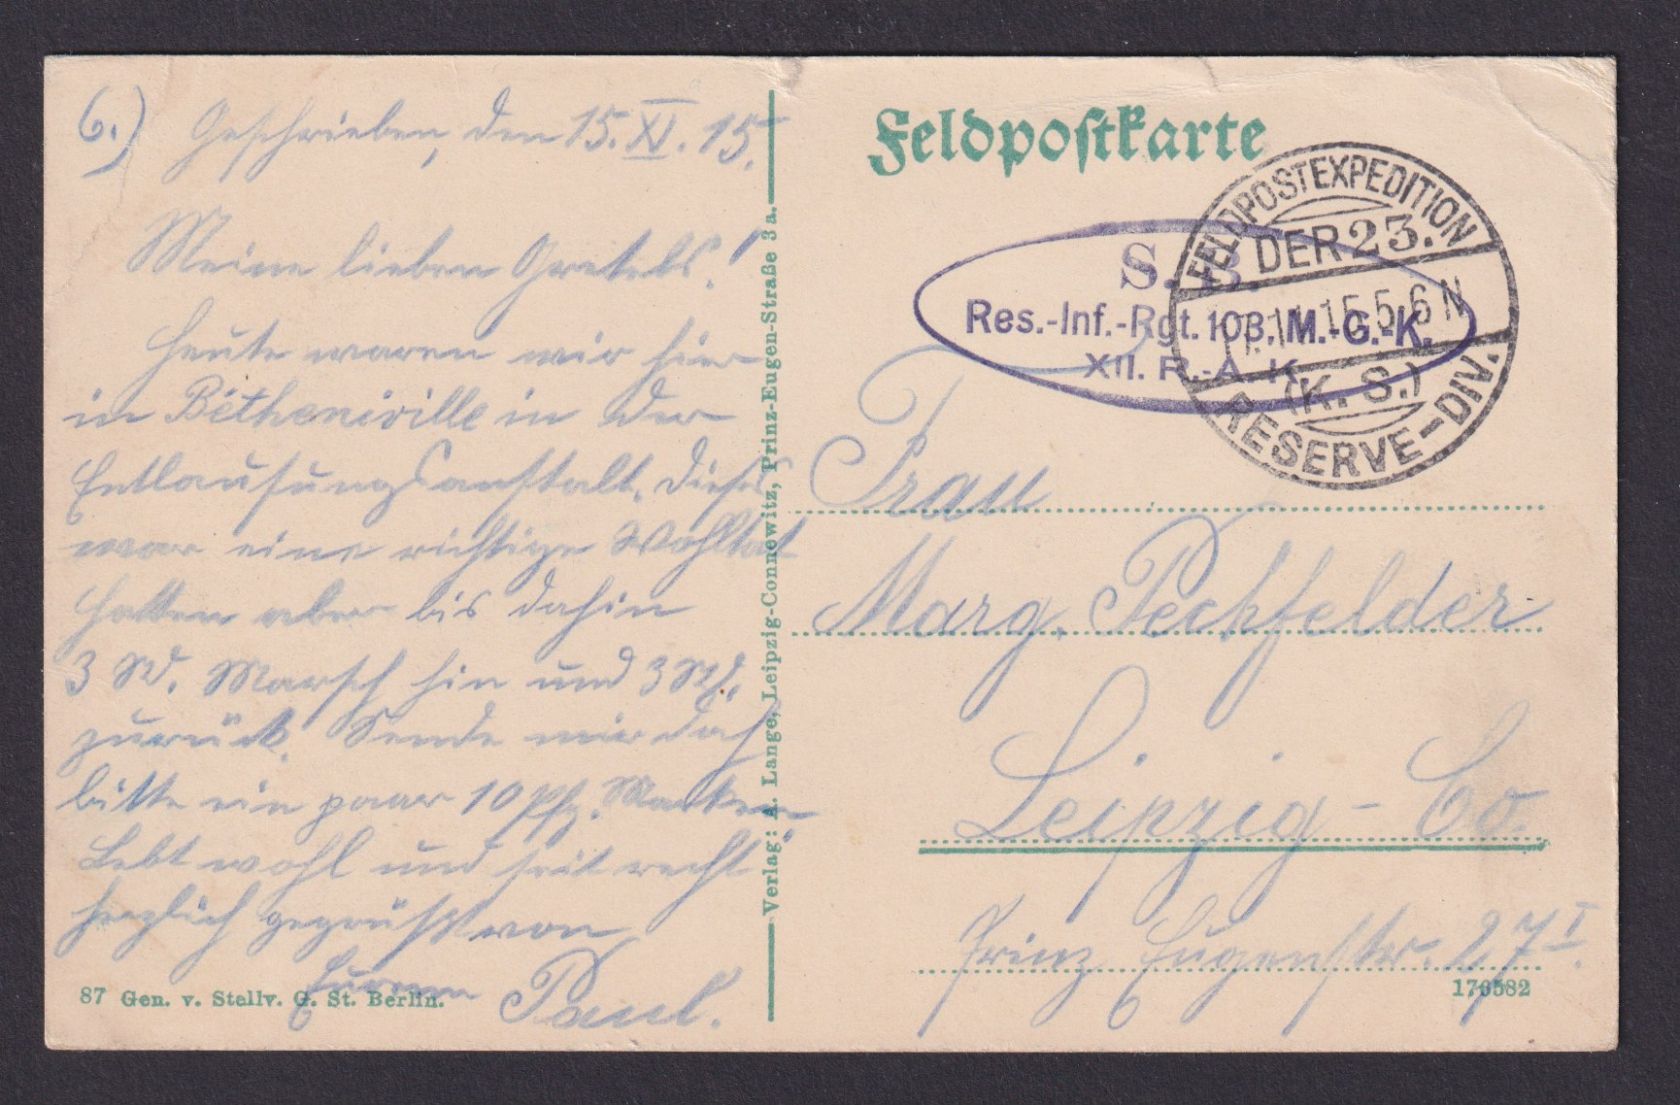 6.) Geschrieben, den 15. XI. 15.
Meine lieben Gretels!
Heute waren wir hier
in Bétheniville in der
Entlausungsanstalt. Dieses
war eine richtige Wohltat
hatten aber bis dahin
3 St. Marsch hin und 3 St.
zurück. Sende mir doch
bitte ein paar 10 Pfg. Marken
Lebt wohl und seit recht
herzlich gegrüßt von
Eurem Paul.
87 Gen. v. Stellv. G. St. Berlin.
Verlag: A. Lange, Leipzig-Connewitz, Prinz-Eugen-Straße 3 a.
Feldpostkarte
S. B.
Res.-Inf.-Rgt. 103. M.-G.-K.
XII. R.-A.-K.
FELDPOSTEXPEDITION
DER 23.
11.15. 5-6 N
(K. S.)
RESERVE-DIV.
Frau
Marg. Pechfelder
Leipzig-Co.
Prinz Eugenstr. 27 I.
176582